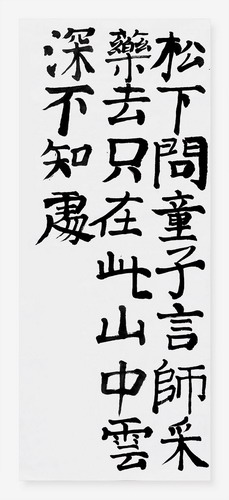 松下問童子言師采
藥去只在此山中雲
深不知處